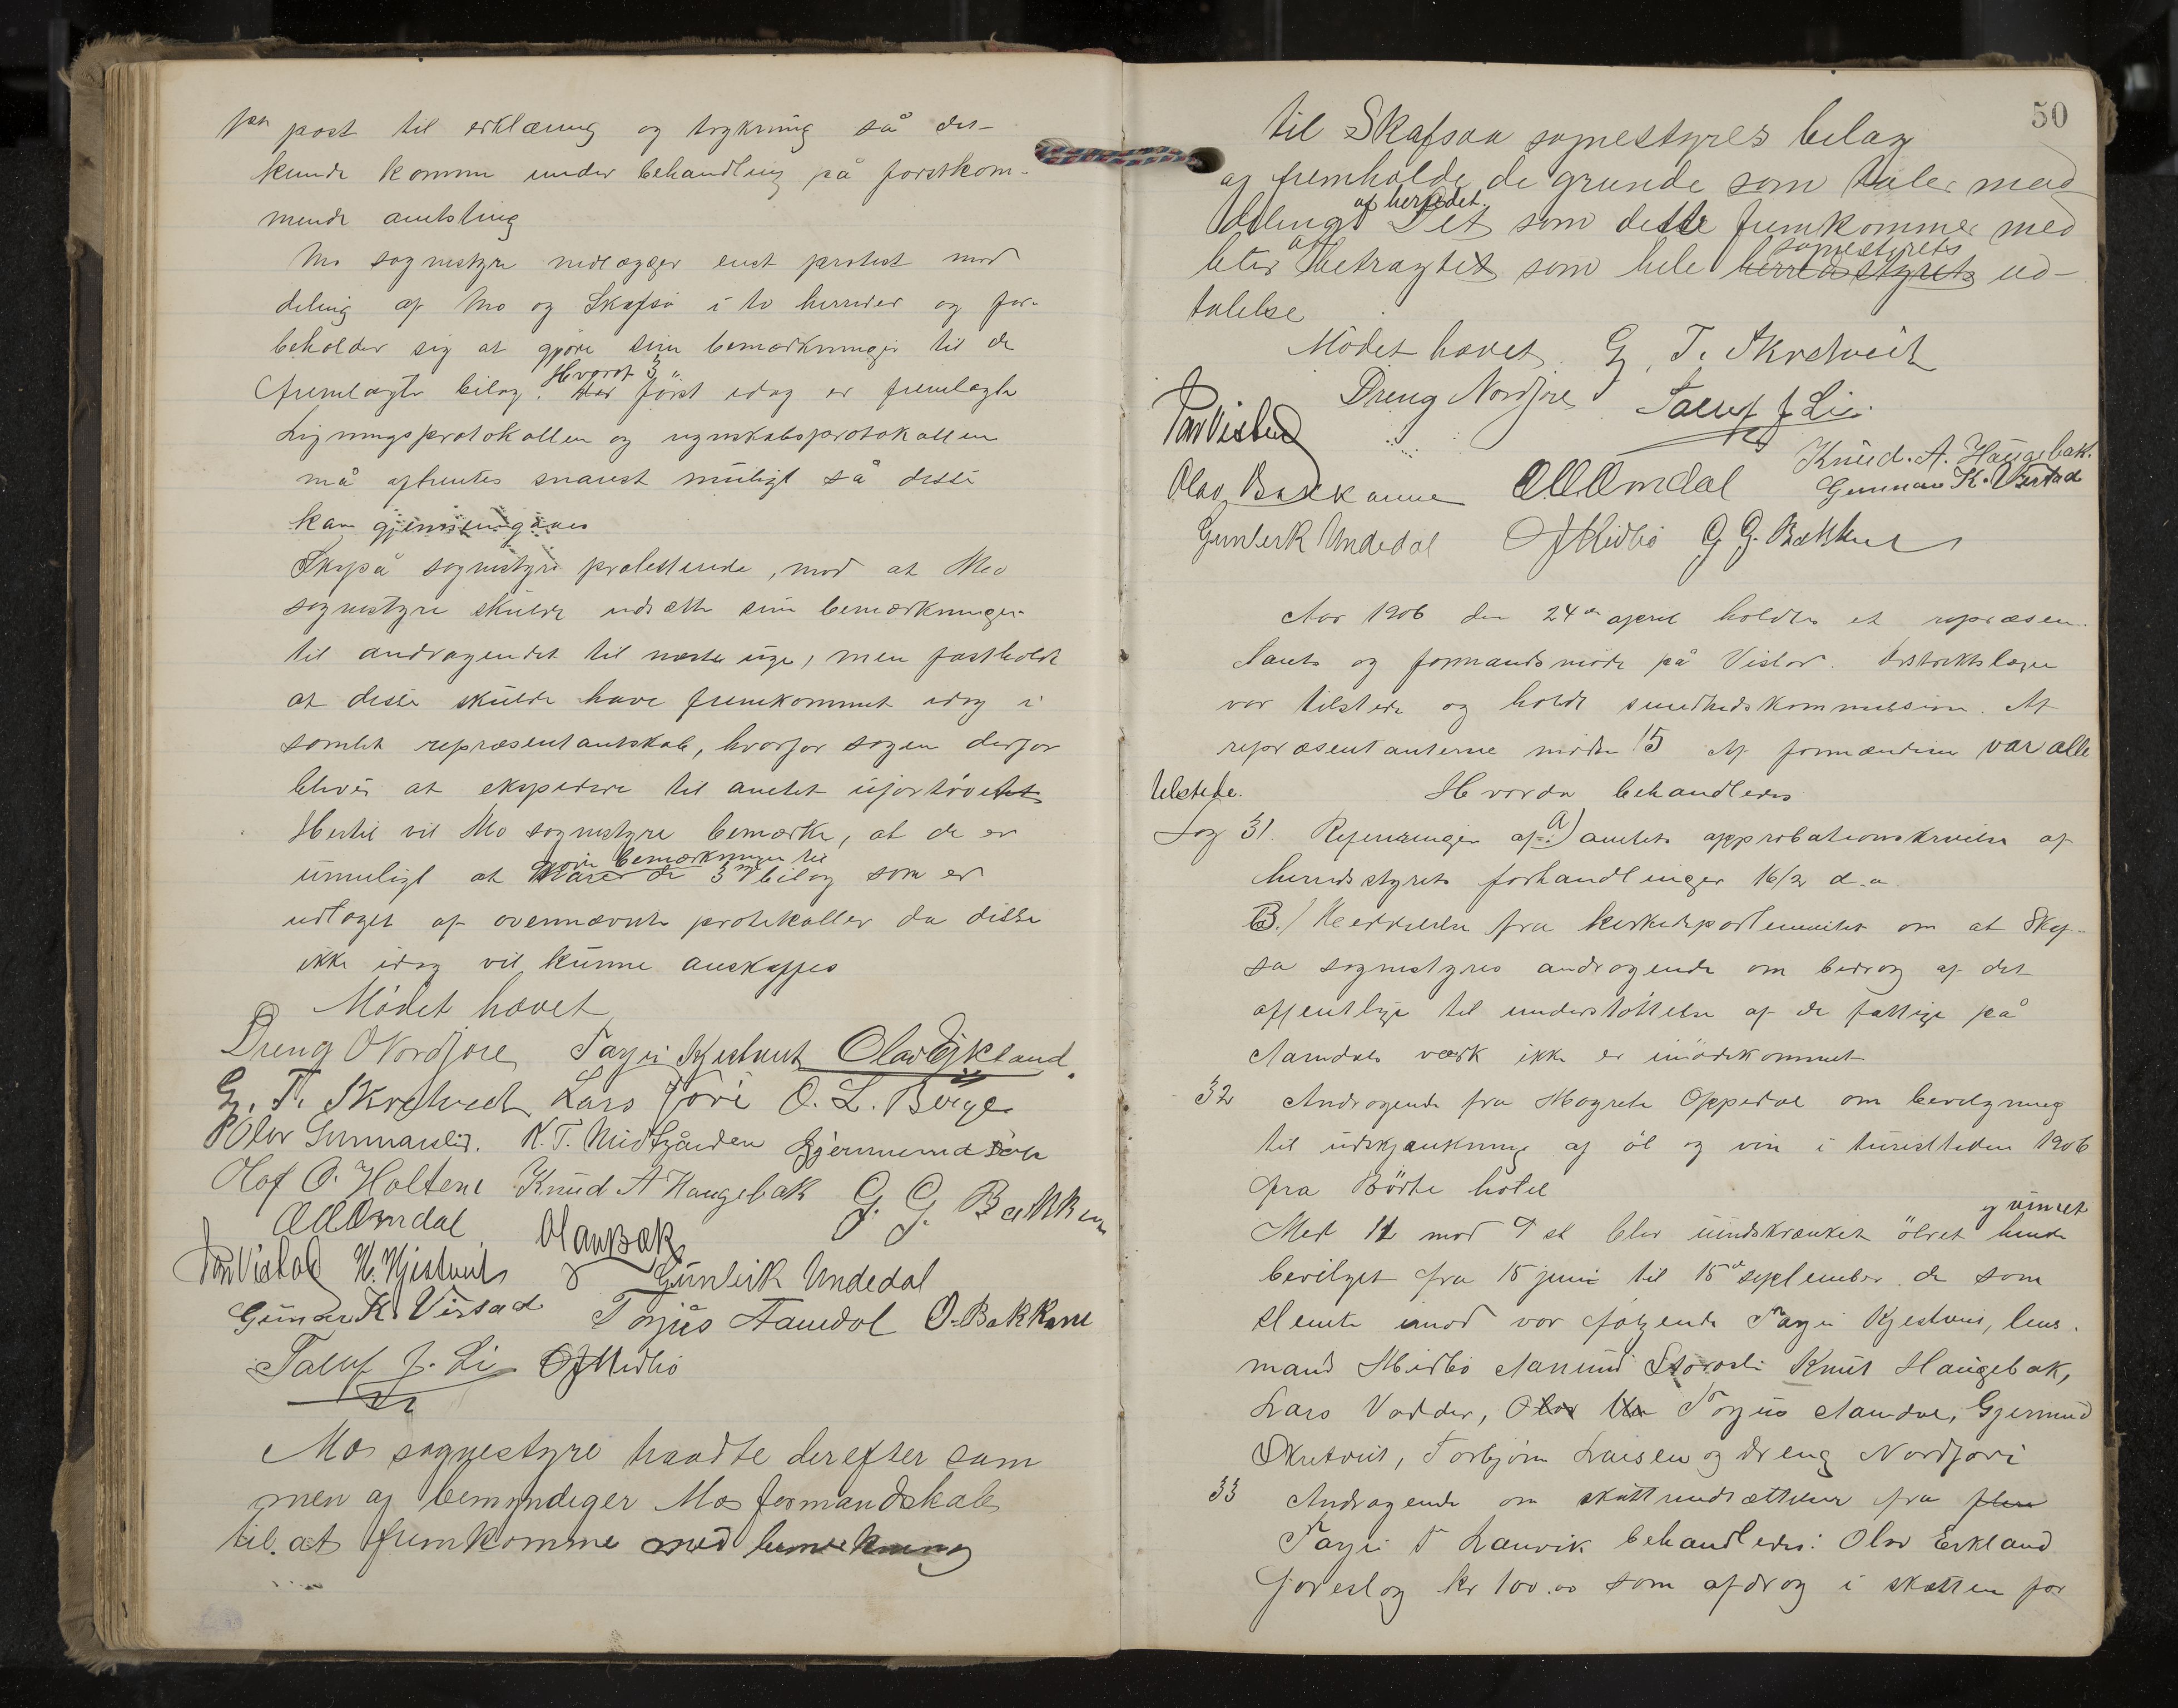 pr post til erklæring og trykning så det
kunde komme under behandling på førstkom-
mende amtsting
Mo sognestyre nedlægger enst. protest mod
deling af Mo og Skafså i to herreder og for-
beholder sig at gjøre sine bemærkninger til de
fremlagte bilag. Hvoraf 3 først idag er fremlagte
Ligningsprotokollen og regnskabsprotokollen
må afhentes snarest muligt så disse
kan gjennemgaaes
Skafså sognestyre protesterede, mod at Mo
sognestyre skulde udsætte sine bemærkninger
til andragendet til næste uge, men fastholdt
at disse skulde have fremkommet idag i
samlet repræsentantskab, hvorfor sagen derfor
blever at expedere til amtet ufortøvet
Hertil vil Mo sognestyre bemærke, at de er
umuligt at gjøre bemærkninger til de 3 bilag som er
udtaget af ovennævnte protokoller da disse
ikke idag vil kunne anskaffes
Mødet hævet
Dreng O Nordjore Targei Kjestveit Olav Ejkland.
G. T. Skretveit Lars Jore O. L. Berge
Olav Gunnarslid. K. T. Midtgården Gjermund
Olaf O. Holtene Knud A Haugebak G. G. Bakken
A O Omdal Olav Bæk
Par Vistad H. Kjistveit Gunleik Undedal
Gunar K. Vistad Torjus Aamdal O. Bakkane
Taluf J. Li O J Midbø
Mo sognestyre traadte derefter sam
men og bemyndiger Mos formandskab
til at fremkomme med bemerkning
50
til Skafsaa sognestyres bilag
og fremholde de grunde som taler mod
deling af herredet. Det som dette fremkommer med
bler at betragtet som hele herredsstyrets sognestyrets ud-
talelse
Mödet hævet. G. T. Skretveit
Dreng Nordjore Taluf J Li.
Par Vistad
Knud. A. Haugebak.
Olav Bakkane A O Omdal Gunnar K. Vistad
Gunleik Undedal O J Midbö G G. Bakken
Aar 1906 den 24de april holdtes et repræsen-
tants og formandsmöde på Vistad. Distriktslægen
var tilstede og holdt sundhedskommission. Af
repræsentanterne mödte 15 Af formændene var alle
tilstede. Hvorda behandledes
Sag 31. Referering af a) amtets approbationskrivelse af
herredsstyrets forhandlinger 16/2 d.a.
B./ Meddelelse fra kirkedepartementet om at Skaf-
så sognestyres andragende om bidrag af det
offentlige til understöttelse af de fattige på
Aamdals værk ikke er imödekommet
32 Andragende fra Magrete Oppedal om bevilgning
til udskjænkning af öl og vin i turisttiden 1906
fra Börte hotel
Med 11 mod 9 st blev uindskrænket ölret og vinret hende
bevilget fra 15 juni til 15de september. de som
stemte imod var fölgende Targei Kjestveit, lens-
mand Midbö Aanund Storosli Knut Haugebak,
Lars Vadder, Olav Torjus Aamdal, Gjermund
Skretveit, Torbjörn Larsen og Dreng Nordjore
33 Andragende om skattnedsættelser fra flere
Targei T Lauvik behandledes: Olav Eikland
foreslog kr 100.00 som afdrag i skatten for